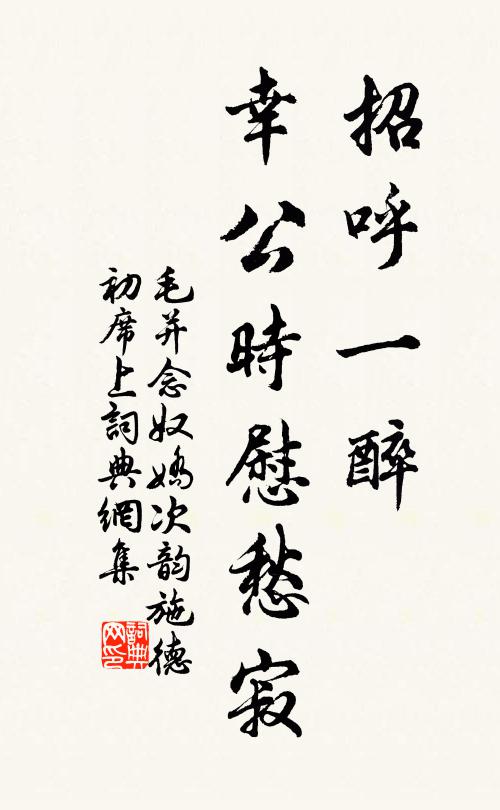 招呼一醉
幸公時慰愁寂
毛并念奴嬌次韵施德
初席上詞典網集
詞典
网印